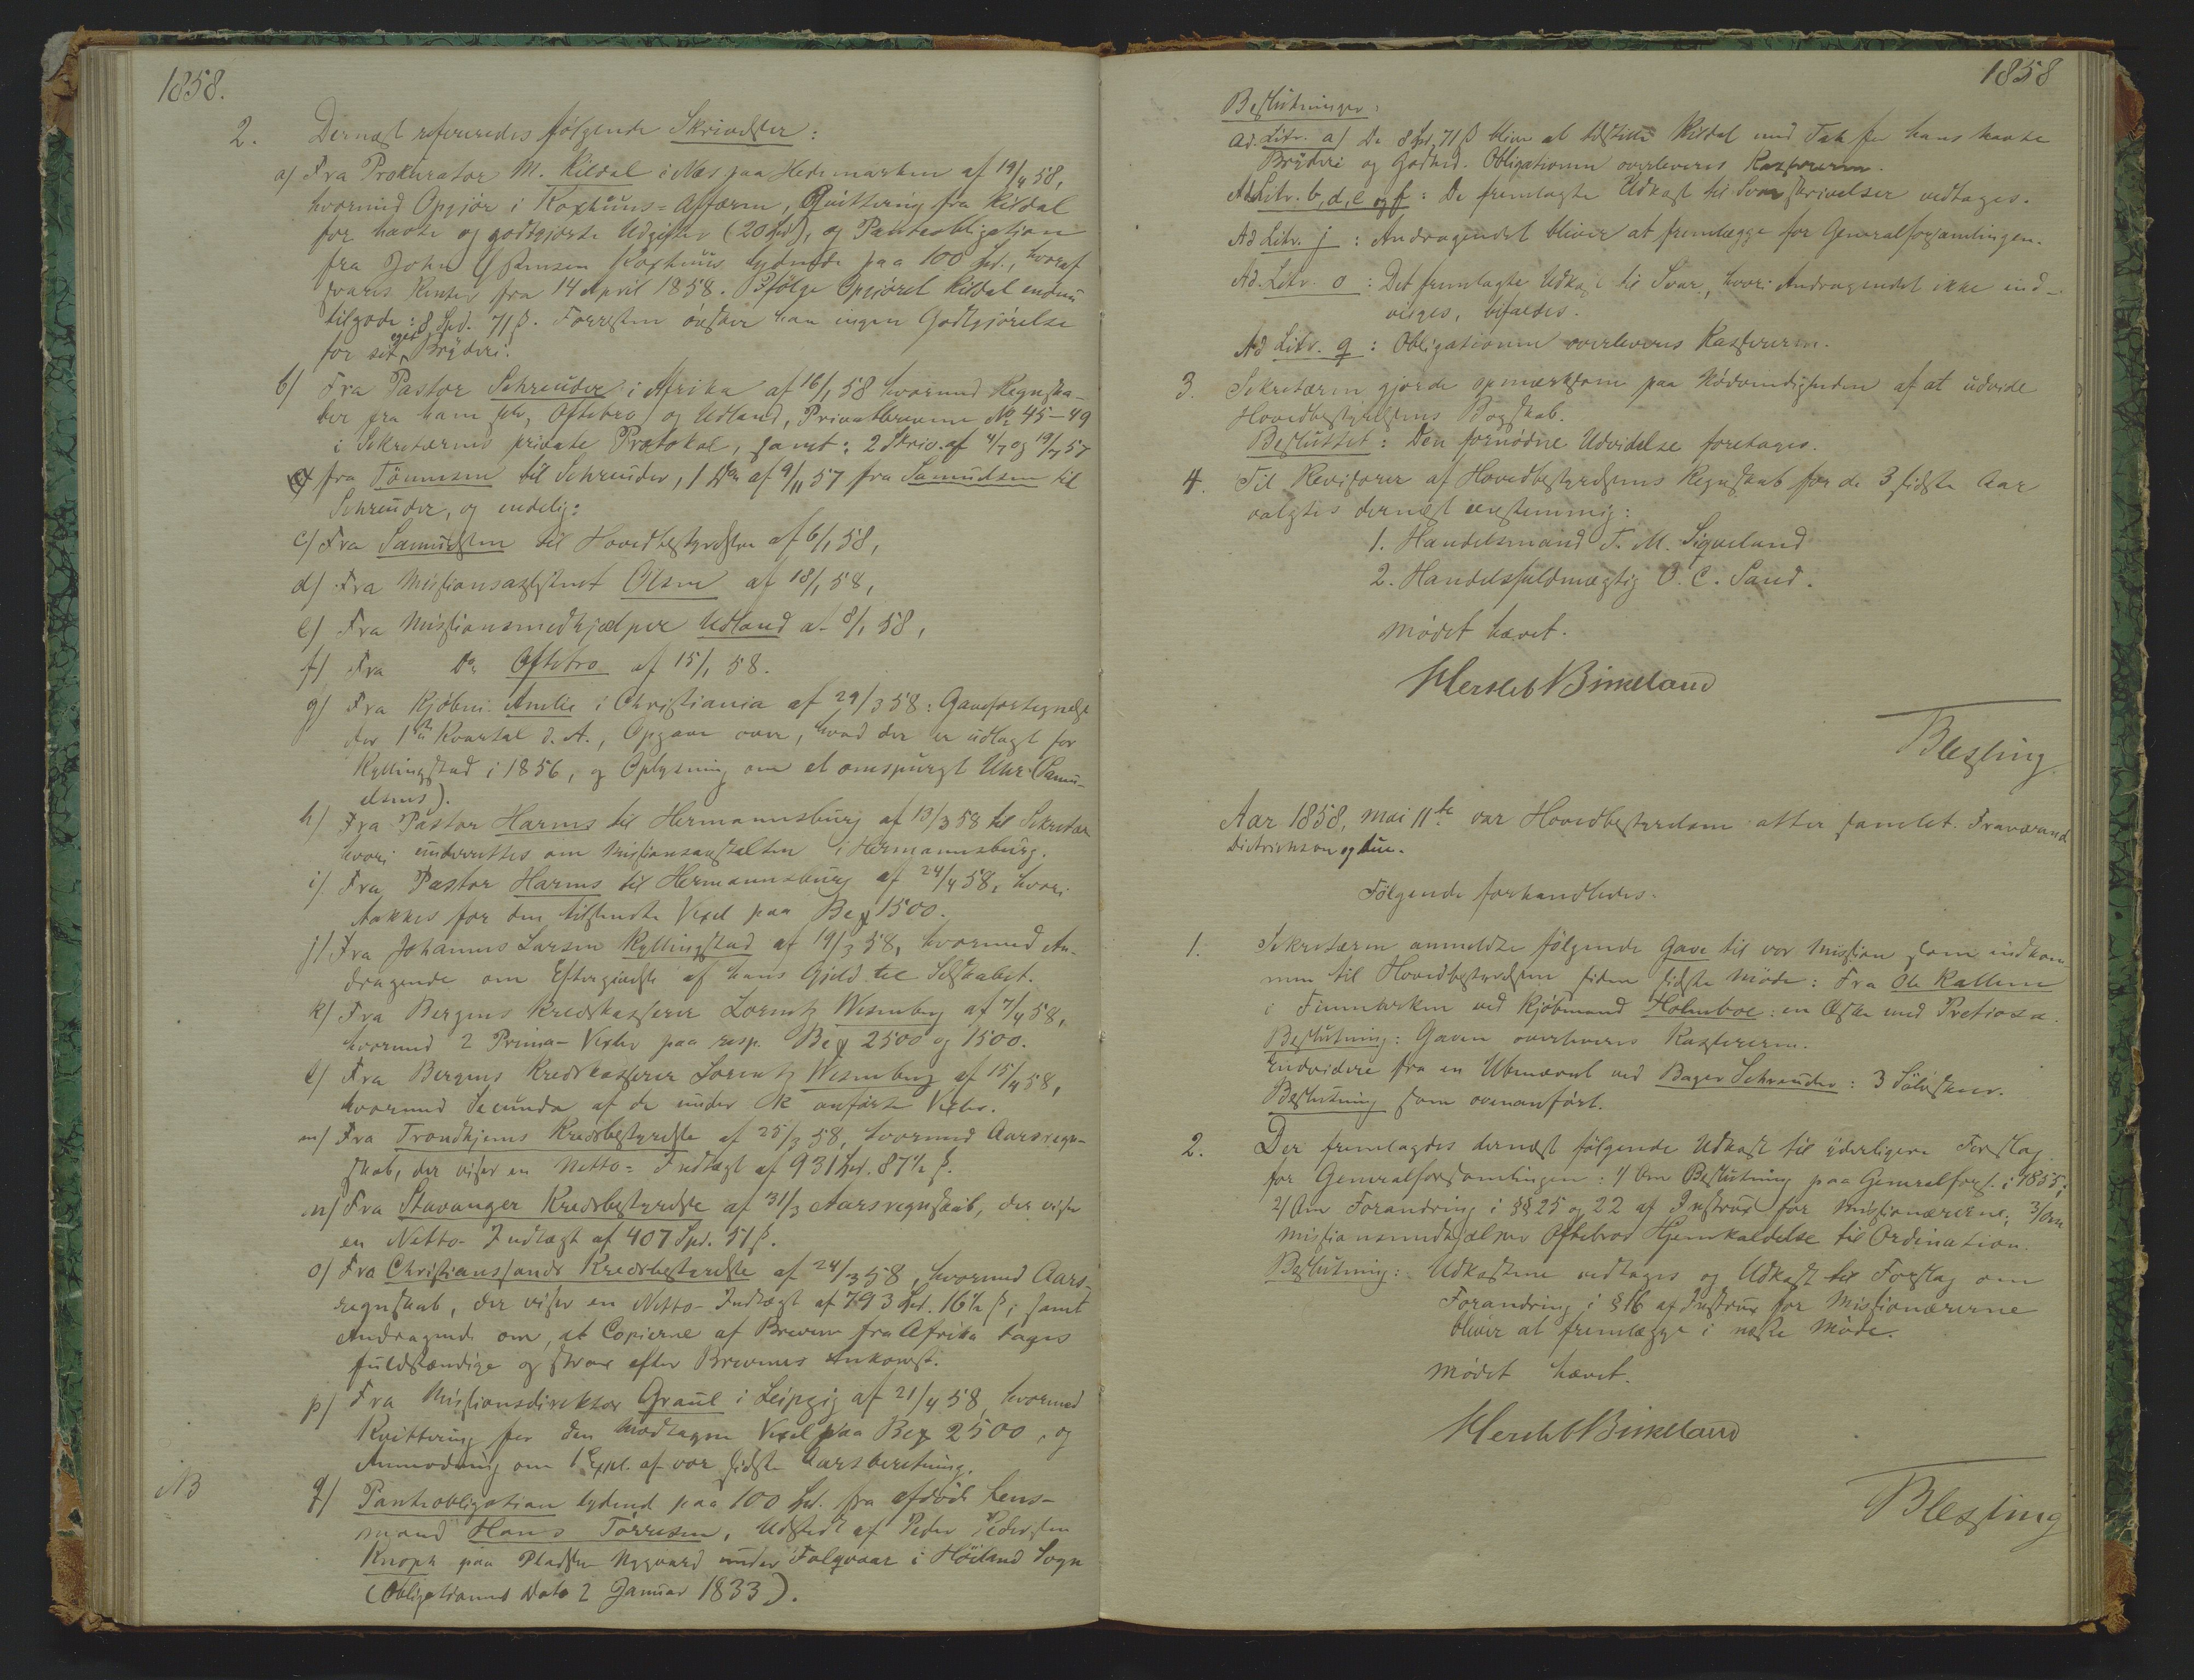 1858.
2. Dernæst refereredes følgende Skrivelser:
a) Fra Prokurator M. Kildal i Næs paa Hedemarken af 19/4 58,
hvormed Opgjør i Roxhuus-Affæren, Qvittering fra Kildal
for havte og godtgjorte Udgifter (20 Spd), og Panteobligation
fra John Roxhuus lydende paa 100 Spd., hvoraf
svares Renter fra 14 April 1858. Ifølge Opgjøret Kildal endnu
tilgode: 8 Spd. 71 ß. Forresten ønsker han ingen Godtgjørelse
for sit eget Bryderi.
b) Fra Pastor Schreuder i Afrika af 16/1 58 hvormed Regnska-
ber fra ham selv, Oftebro og Udland, Privatbrevene No 45-49
i Sekretærens private Protokol, samt: 2 Skriv. af 4/7 og 19/7 57
fra Tönnesen til Schreuder, 1 Do af 9/11 57 fra Samuelsen til
Schreuder, og endelig:
c) Fra Samuelsen til Hovedbestyrelsen af 6/1 58,
d) Fra Missionsassistent Olsen af 18/1 58,
e) Fra Missionsmedhjælper Udland af 8/1 58,
f) Fra Do Oftebro af 15/1 58.
g) Fra Kjøbm. Amlie i Christiania af 29/3 58: Gavefortegnelse
for 1ste Kvartal d. A., Opgave over, hvad der er udlagt for
Kyllingstad i 1856, og Oplysning om et omspurgt Uhr (Samu-
elsens).
h) Fra Pastor Harms til Hermannsburg af 13/3 58 til Sekretær
hvori underrettes om Missionsanstalten i Hermannsburg.
i) Fra Pastor Harms til Hermannsburg af 24/4 58, hvori
takkes for den tilsendte Vexel paa 1500.
j) Fra Johannes Larsen Kyllingstad af 19/3 58, hvormed An-
dragende om Eftergivelse af hans Gjeld til Selskabet.
k) Fra Bergens Kredskasserer Lorentz Wesenberg af 7/4 58,
hvormed 2 Prima-Vexler paa resp. 2500 og 1500.
l) Fra Bergens Kredskasserer Lorentz Wesenberg af 15/4 58,
hvormed Secunda af de under k anførte Vexler.
m) Fra Trondhjems Kredsbestyrelse af 25/3 58, hvormed Aarsregn-
skab, der viser en Netto-Indtægt af 931 Spd. 87½ ß.
n) Fra Stavanger Kredsbestyrelse af 31/3 Aarsregnskab, der viser
en Netto-Indtægt af 407 Spd. 51 ß.
o) Fra Christianssands Kredsbestyrelse af 24/3 58, hvormed Aars-
regnskab, der viser en Netto-Indtægt af 793 Spd. 16½ ß; samt
Andragende om, at Copierne af Brevene fra Afrika tages
fuldstændige og strax efter Brevenes Ankomst.
p) Fra Missionsdirektør Graul i Leipzig af 21/4 58, hvormed
Kvittering for den modtagne Vexel paa 2500, og
Anmodning om 1 Expl. af vor sidste Aarsberetning.
NB q) Panteobligation lydend paa 100 Spd. fra afdøde Lens-
mand Hans Törresen, udstedt af Peder Pedersen
Knoph paa Pladsen Nygaard under Folgvaar i Höiland Sogn
(Obligationens Dato 2 Januar 1833).
1858
Beslutninger:
Ad. Litr. a) De 8 Spd, 71 ß bliver at tilstille Kildal med Tak for hans havte
Bryderi og Godhed. Obligationen overleveres Kassereren.
Ad Litr. b, d, e og f: De fremlagte Udkast til Svarskrivelser vedtages.
Ad Litr. j: Andragendet bliver at fremlægge for Generalforsamlingen.
Ad. Litr. o: Det fremlagte Udkast til Svar, hvori Andragendet ikke ind-
vilges, bifaldes.
Ad Litr. q: Obligationen overleveres Kassereren.
3. Sekretæren gjorde opmærksom paa Nødvendigheden af at udvide
Hovedbestyrelsens Bogskab.
Besluttet: Den fornødne Udvidelse foretages.
4. Til Revisorer af Hovedbestyrelsens Regnskab for de 3 sidste Aar
valgtes dernæst eenstemmig:
1. Handelsmand T. M. Siqveland
2. Handelsfuldmægtig O. C. Sand.
Mødet hævet.
Hersleb Birkeland
Blessing
Aar 1858, Mai 11te var Hovedbestyrelsen atter samlet. Fraværende
Dietrichson og Due.
Følgende forhandledes.
1. Sekretæren anmeldte følgende Gave til vor Mission som indkom-
men til Hovedbestyrelsen siden sidste Møde: Fra Ole Kallem
i Finmarken ved Kjøbmand Holmboe: en Æske med Pretiosa.
Beslutning: Gaven overleveres Kassereren.
Endvidere fra en Ubenævnt ved Bager Schreuder: 3 Sølvskeer.
Beslutning som ovenanført.
2. Der fremlagdes dernæst følgende Udkast til yderligere Forslag
for Generalforsamlingen: 1) Om Beslutning paa Generalfors. i 1855;
2) Om Forandring i §§ 25 og 22 af Instrux for Missionærerne; 3) Om
Missionsmedhjælper Oftebros Hjemkaldelse til Ordination.
Beslutning: Udkastene vedtages og Udkast til Forslag om
Forandring i § 16 af Instrux for Missionærerne
bliver at fremlægge i næste Møde.
Mødet hævet.
Hersleb Birkeland
Blessing